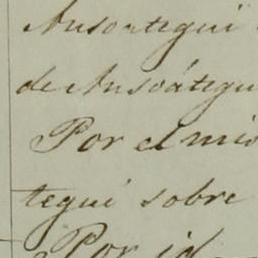 Ansoategui
de Ansoátegu
Por el mis
tegui sobre
Por id